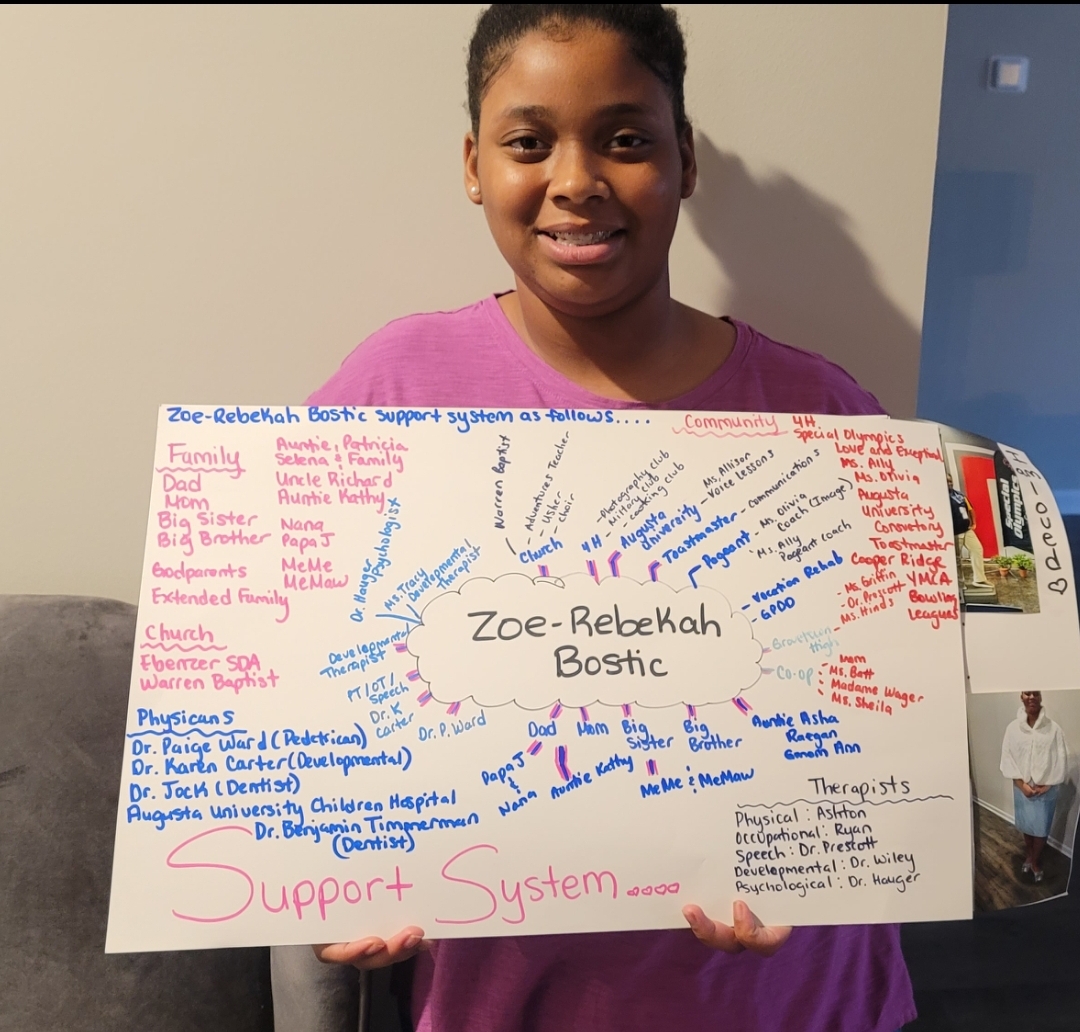 Zoe-Rebekah Bostic support system as follows....
Family
Dad
Mom
Big Sister
Big Brother
Godparents
Extended Family
Auntie, Patricia
Selena & Family
Uncle Richard
Auntie Kathy
Nana
Papa J
MeMe
MeMaw
Church
Ebenzer SDA
Warren Baptist
Physicans
Dr. Paige Ward (Pedetrican)
Dr. Karen Carter (Developmental)
Dr. Jock (Dentist)
Augusta University Children Hospital
Dr. Benjamin Timmerman
(Dentist)
Community
4H
Special Olympics
Love and Exceptional
Ms. Ally
Ms. Olivia
Augusta
University
Consvetory
Toastmaster
Cooper Ridge
YMCA
Bowling
Leagues
Zoe-Rebekah
Bostic
Dr. Hauger
Psychologist
Ms. Tracy
Developmental
Therapist
Warren Baptist
- Adventures Teacher
- Usher
- choir
Church
- Photography club
- Military club
- cooking club
4H
Ms. Allison
- Voice Lessons
Augusta
University
Toastmaster - Communications
- Ms. Olivia
Coach (Image)
Ms. Ally
Pageant coach
Pageant
- Vocation Rehab
- GPDD
- Ms. Griffin
- Dr. Prescott
- Ms. Hinds
High
Co-op
Mom
Ms. Batt
Madame Wager
Ms. Sheila
Developmental
Therapist
PT/OT/
Speech
Dr. K
Carter
Dr. P. Ward
Dad
Mom
Big
Sister
Big
Brother
Auntie Asha
Raegan
Ann
Papa J
&
Nana
Auntie Kathy
MeMe & MeMaw
Therapists
Physical : Ashton
Occupational : Ryan
Speech : Dr. Prescott
Developmental : Dr. Wiley
Psychological : Dr. Hauger
Support System....
Special
Olympics